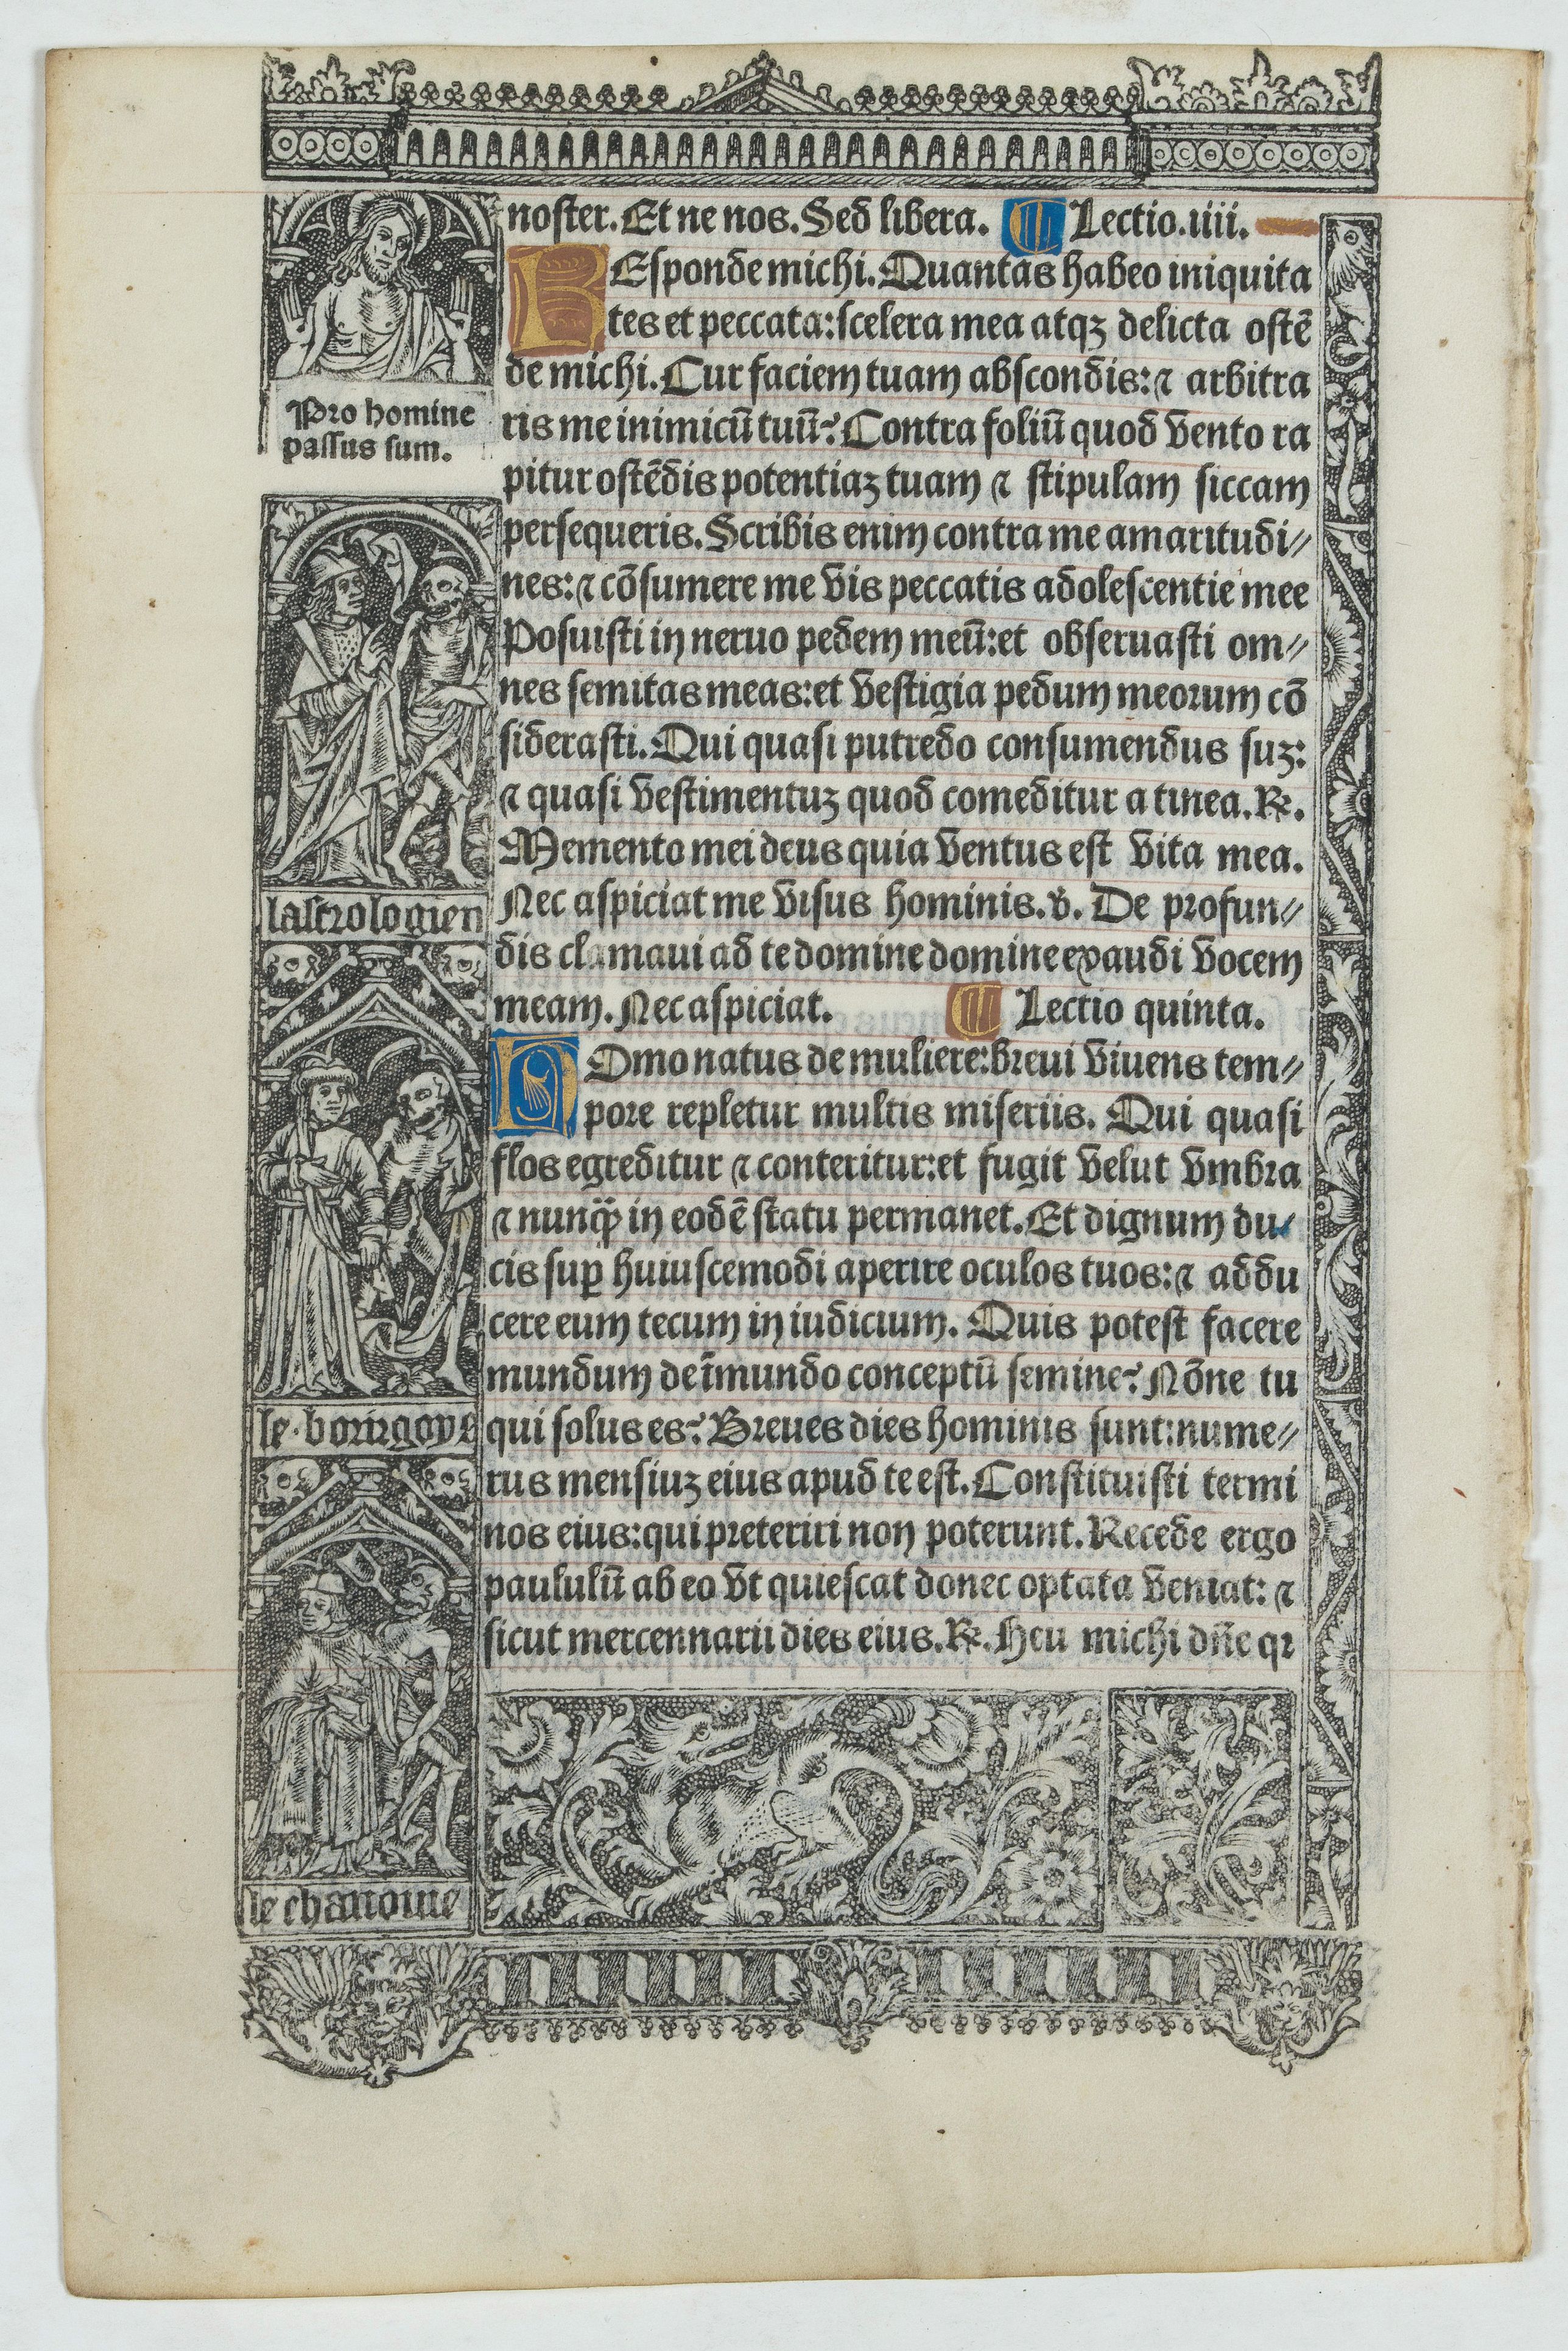 noster. Et ne nos. Sed libera. Lectio.iiii.
REsponde michi. Quantas habeo iniquita
tes et peccata: scelera mea atqꝫ delicta ostẽ
de michi. Cur faciem tuam abscondis: ⁊ arbitra
ris me inimicũ tuũ? Contra foliũ quod vento ra
pitur ostẽdis potentiaꝫ tuam ⁊ stipulam siccam
persequeris. Scribis enim contra me amaritudi⸗
nes: ⁊ cõsumere me vis peccatis adolescentie mee
Posuisti in neruo pedem meũ: et obseruasti om⸗
nes semitas meas: et vestigia pedum meorum cõ
siderasti. Qui quasi putredo consumendus suꝫ:
⁊ quasi vestimentuꝫ quod comeditur a tinea. ℟.
Memento mei deus quia ventus est vita mea.
Nec aspiciat me visus hominis. ℣. De profun⸗
dis clamaui ad te domine domine exaudi vocem
meam. Nec aspiciat. Lectio quinta.
HOmo natus de muliere: breui viuens tem⸗
pore repletur multis miseriis. Qui quasi
flos egreditur ⁊ conteritur: et fugit velut vmbra
⁊ nunq̃ in eodẽ statu permanet. Et dignum du⸗
cis suꝑ huiuscemodi aperire oculos tuos: ⁊ addu
cere eum tecum in iudicium. Quis potest facere
mundum de ĩmundo conceptũ semine? Nõne tu
qui solus es? Breues dies hominis sunt: nume⸗
rus mensiuꝫ eius apud te est. Constituisti termi
nos eius: qui preteriri non poterunt. Recede ergo
paululũ ab eo vt quiescat donec optata veniat: ⁊
sicut mercennarii dies eius. ℟. Heu michi dñe qꝛ
Pro homine
passus sum.
lastrologien
le bourgoys
le chanoine